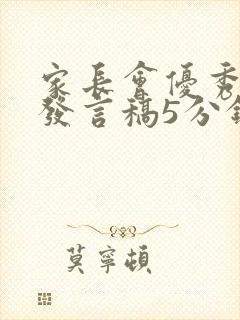 家長會優秀
發言稿5分鐘
莫寧頓